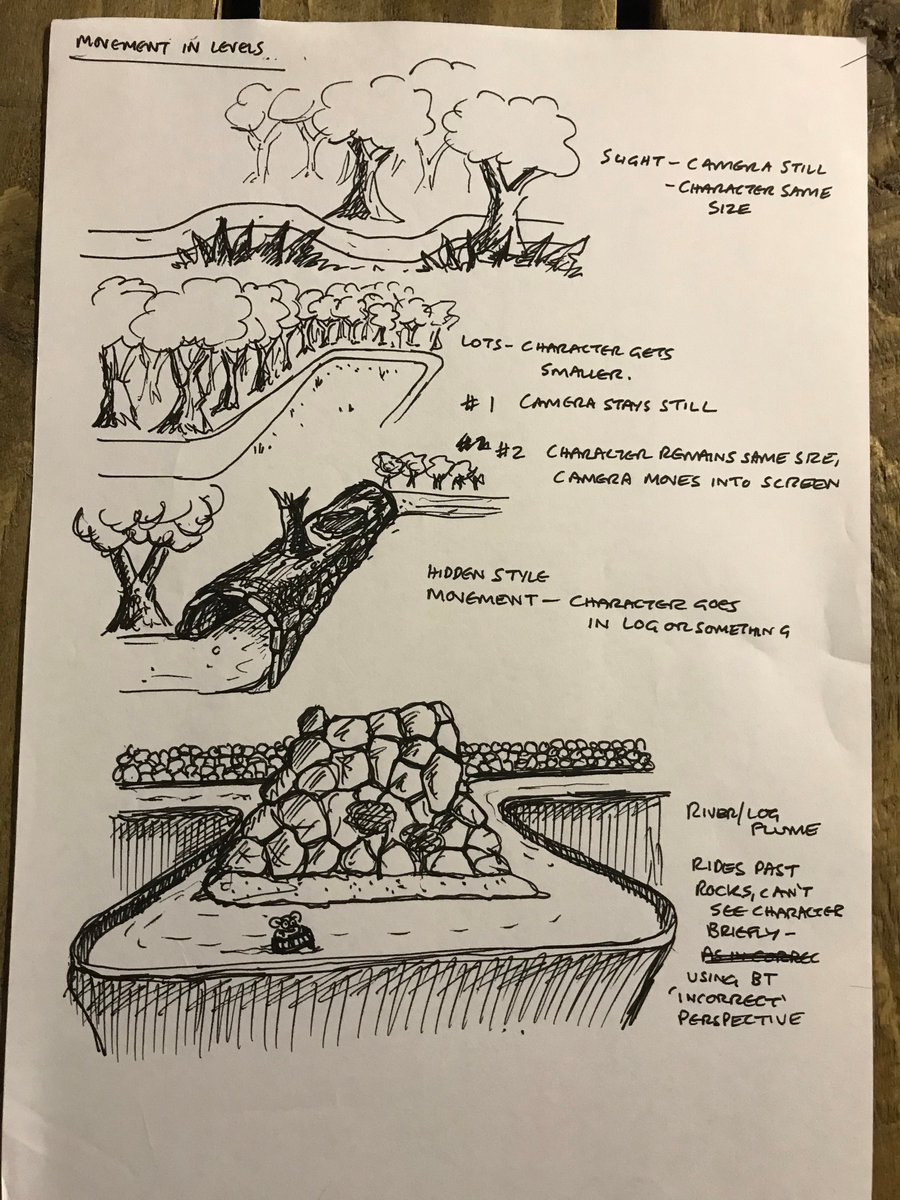 MOVEMENT IN LEVELS...
SLIGHT - CAMERA STILL
- CHARACTER SAME
SIZE
LOTS - CHARACTER GETS
SMALLER.
#1 CAMERA STAYS STILL
#2 CHARACTER REMAINS SAME SIZE,
CAMERA MOVES INTO SCREEN
HIDDEN STYLE
MOVEMENT - CHARACTER GOES
IN LOG OR SOMETHING
RIVER/LOG
PLUME
RIDES PAST
ROCKS, CAN'T
SEE CHARACTER
BRIEFLY -
AS IN CORREC
USING BT
'INCORRECT'
PERSPECTIVE